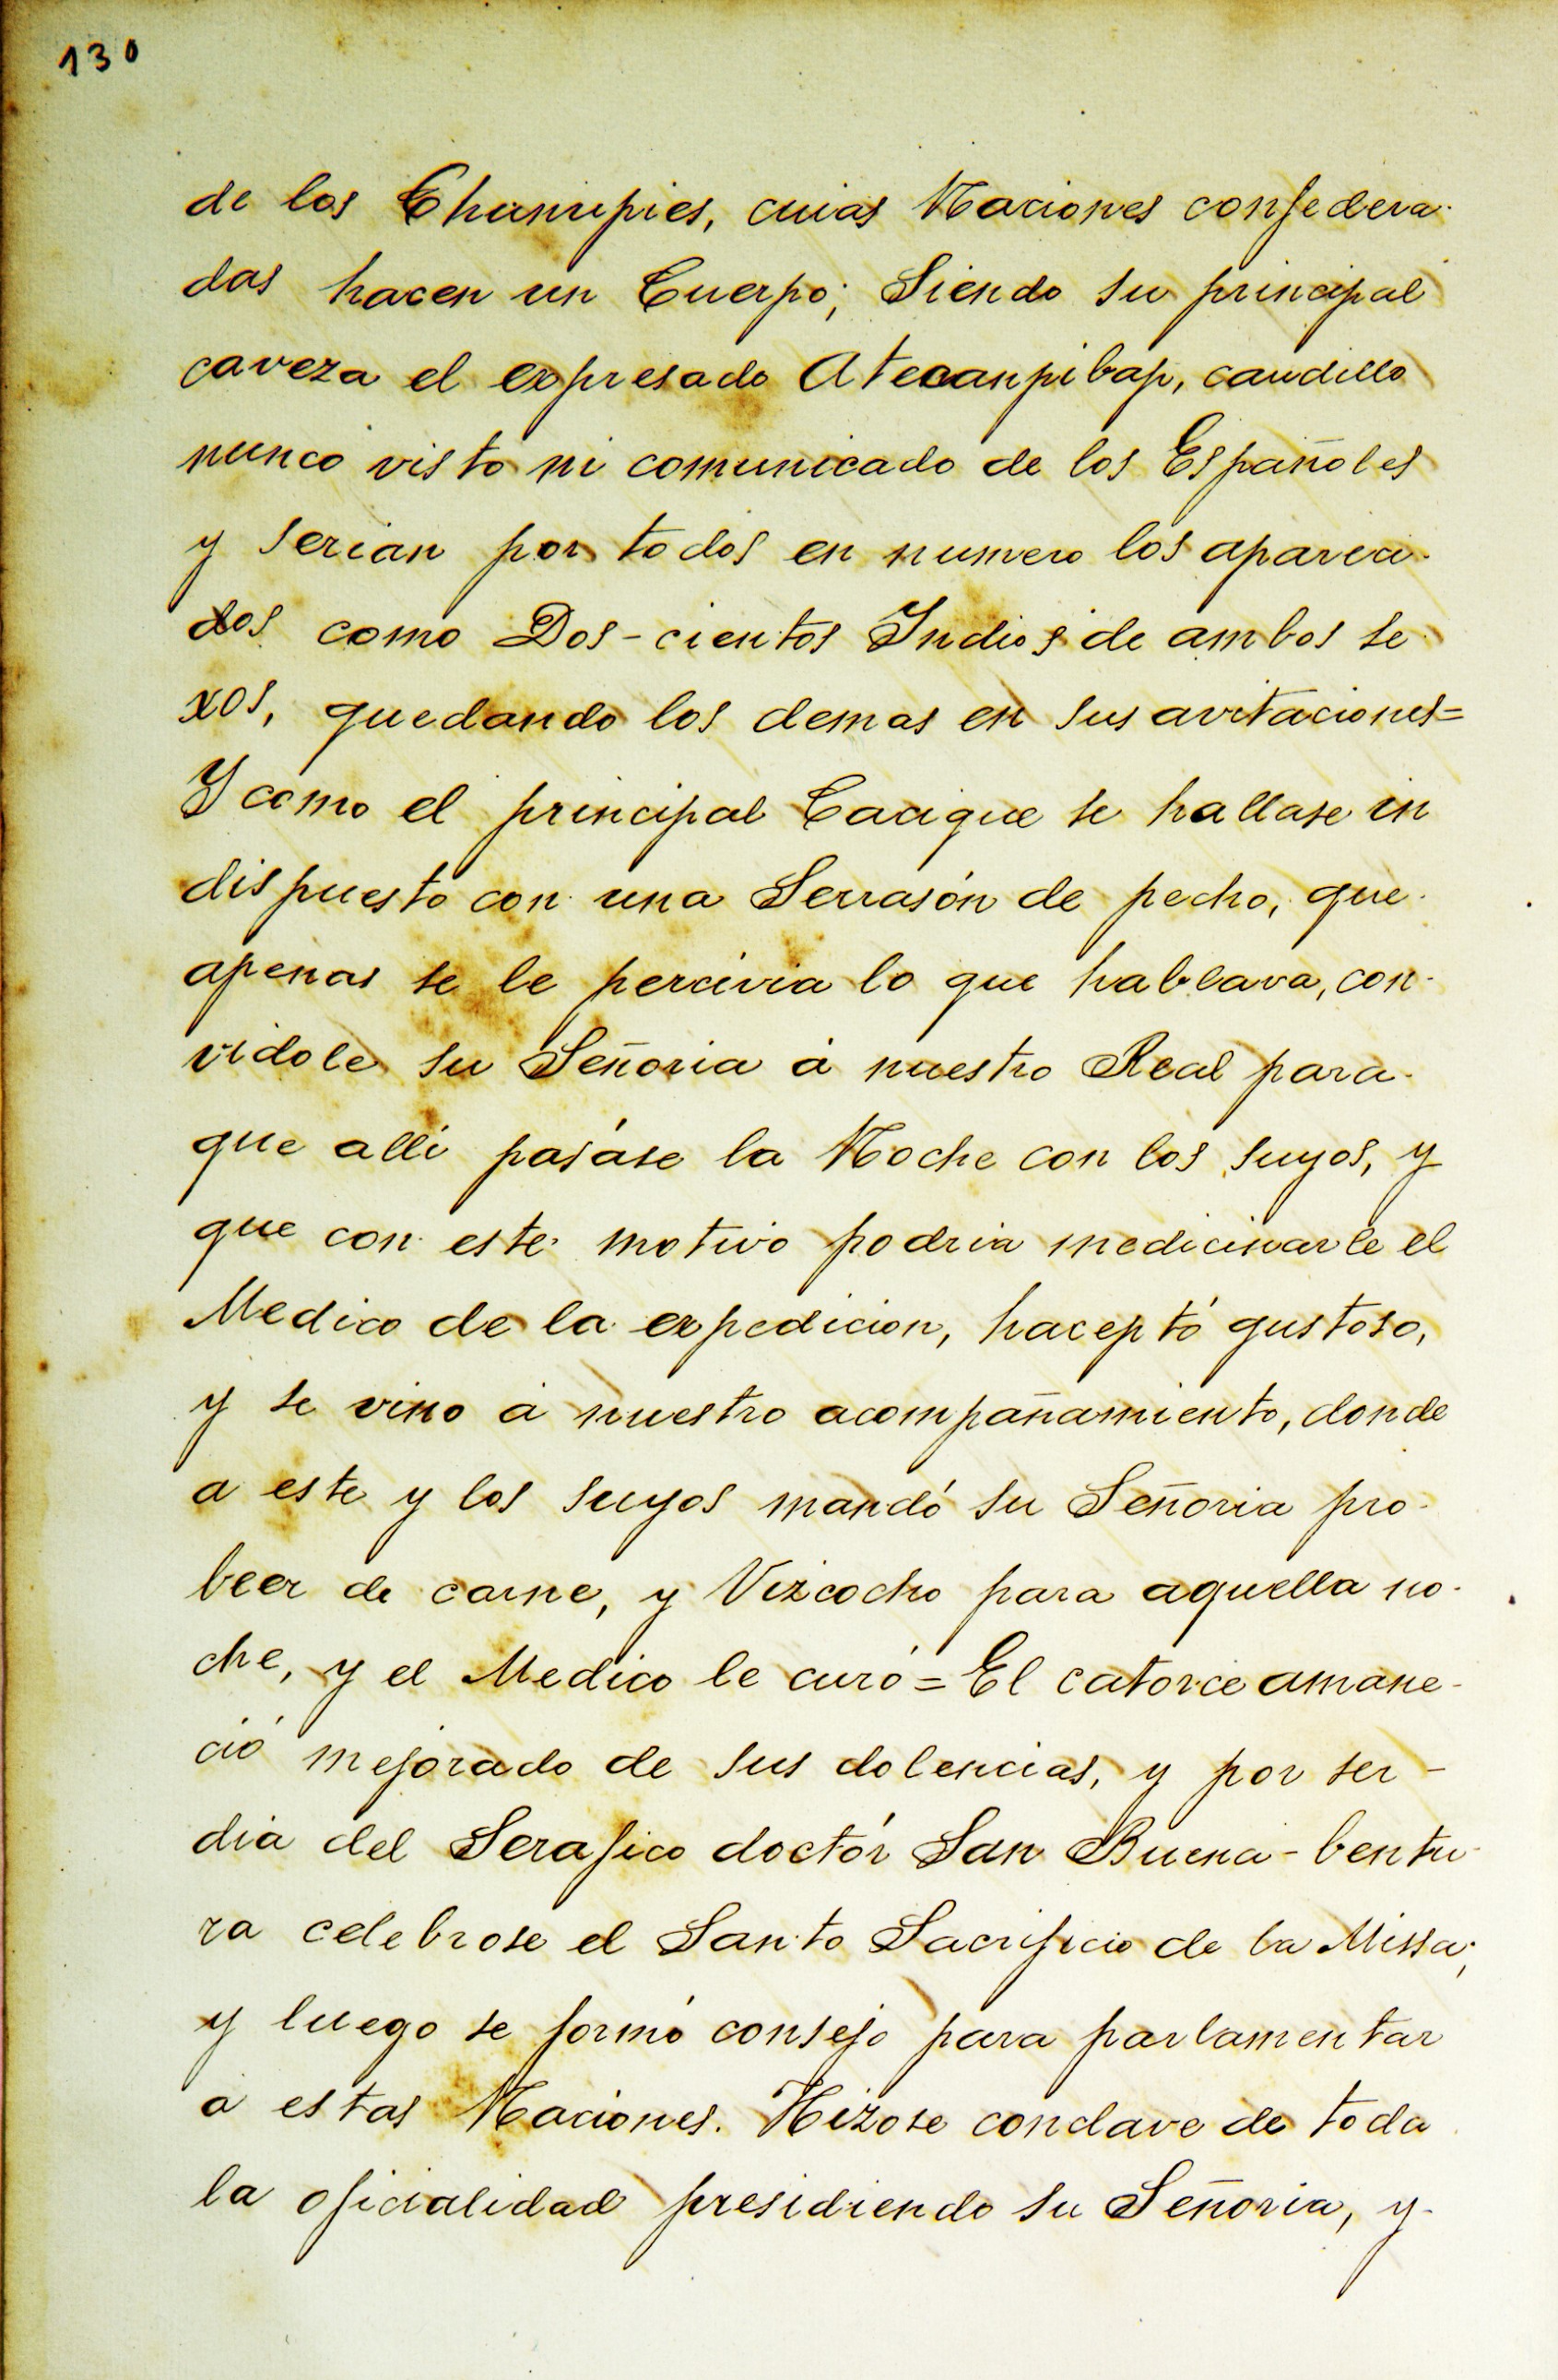 130
de los Chunupies, cuias Naciones confedera-
das hacen un Cuerpo; Siendo su principal
caveza el expresado Atecanpibap, caudillo
nunco visto ni comunicado de los Españoles
y serian por todos en numero los apareci-
dos como Dos-cientos Indios de ambos se
xos, quedando los demas en sus avitaciones=
Y como el principal Cacique se hallase in
dispuesto con una Serrasón de pecho, que
apenas se le percivia lo que hablava, con-
vidole su Señoria á nuestro Real para-
que alli pasáse la Noche con los suyos, y
que con este motivo podria medicinarle el
Medico de la expedicion, haceptó gustoso,
y se vino á nuestro acompañamiento, donde
a este y los suyos mandó su Señoria pro-
beer de carne, y Vizcocho para aquella no-
che, y el Medico le curó = El catorce amane-
ció mejorado de sus dolencias, y por ser -
dia del Serafico doctór San Buena-bentu-
ra celebrose el Santo Sacrificio de la Missa;
y luego se formó consejo para parlamentar
a estas Naciones. Hizose conclave de toda
la oficialidad presidiendo su Señoria, y-